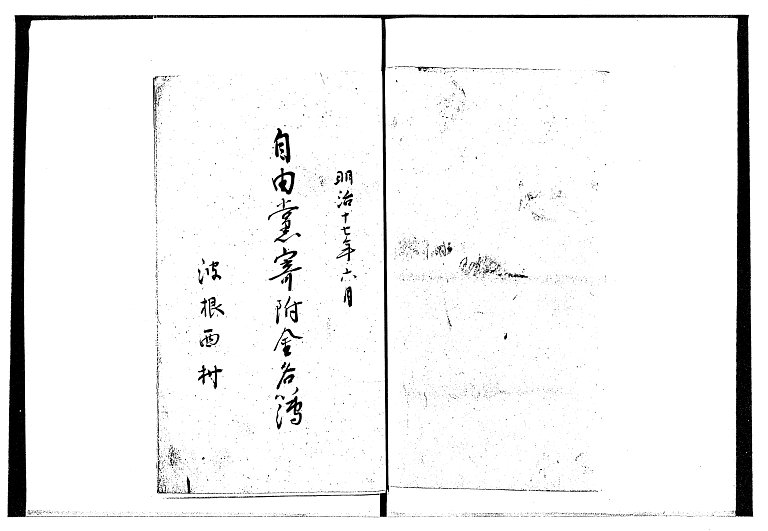 明治十七年六月
自由黨寄附金名簿
波根西村